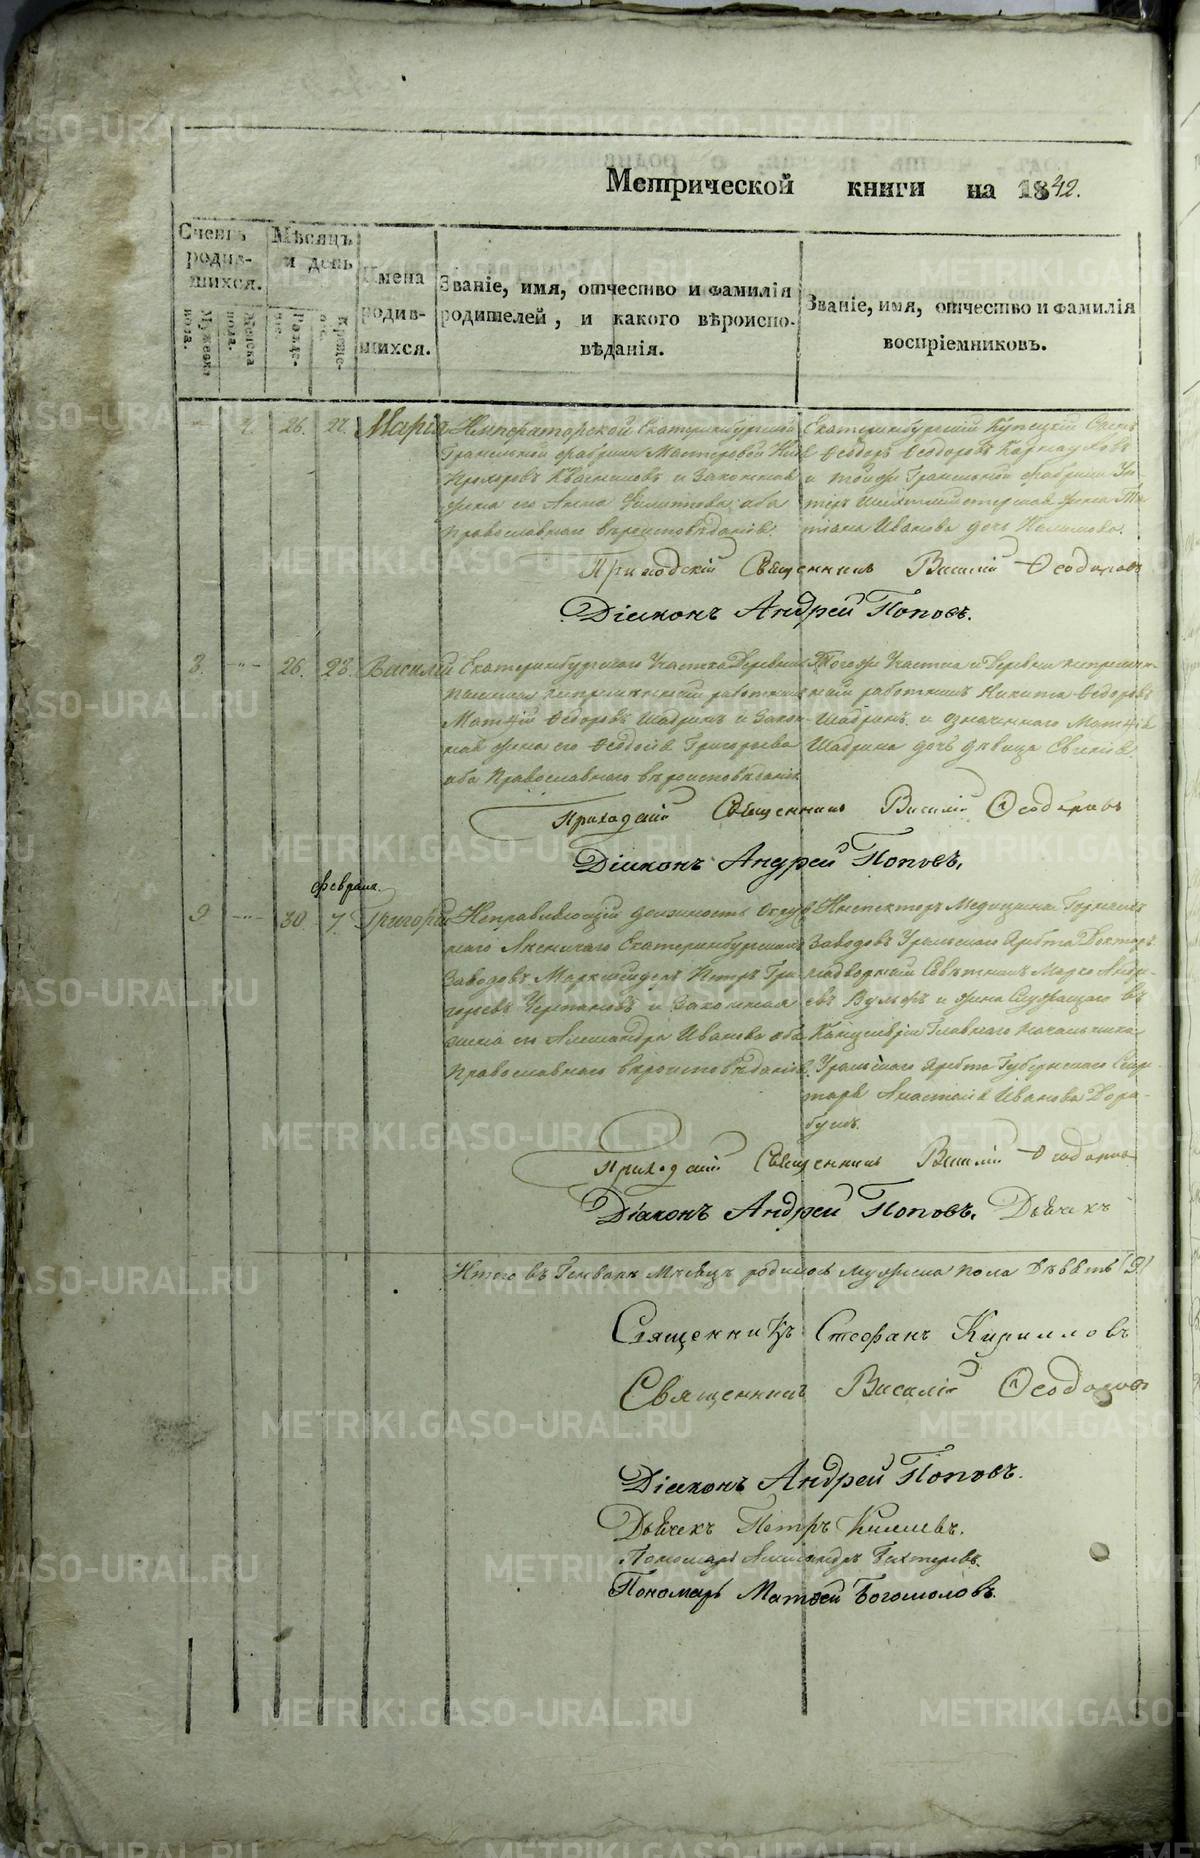 Метрической книги на 1842.
Счетъ родив-
шихся.
Мужеска пола.
Женска пола.
Мѣсяцъ и день
Рожде-
Креще-
Имена родив-
шихся.
Званіе, имя, отчество и фамилія
родителей, и какого вѣроиспо-
вѣданія.
Званіе, имя, отчество и фамилія
воспріемниковъ.
26. 27. Марія
Императорской Екатеринбургской
Гранильной фабрики Мастеровой
Прохоровъ и законная
жена его Анна оба
православнаго вѣроисповѣданія.
Екатеринбургскій Купецкій Сынъ
Ѳеодоръ Ѳеодоровъ
и тойже Гранильной фабрики
жена Та-
тіана Иванова дочь
Приходскій Священникъ Василій Ѳеодоровъ
Діаконъ Андрей Поповъ.
26. 28. Василій
Екатеринбургскаго Участка Деревни
непремѣнный работникъ
Матѳій Ѳедоровъ Шадринъ и закон-
ная жена его Ѳеодосія Григорьева
оба православнаго вѣроисповѣданія
Тогоже Участка и Деревни непремѣн-
ный работникъ Никита Ѳедоровъ
Шадринъ и означеннаго Матѳія
Шадрина дочь дѣвица
Приходскій Священникъ Василій Ѳеодоровъ
Діаконъ Андрей Поповъ.
февраля.
9 30 7. Григорій
Исправляющій должность Окруж-
наго Лѣсничаго Екатеринбургскихъ
Заводовъ Маркшейдеръ Петръ Гри-
горьевъ и законная
жена его Александра Иванова оба
православнаго вѣроисповѣданія.
Инспекторъ Медицины Горныхъ
Заводовъ Уральскаго Хребта Докторъ
надворный Совѣтникъ Марко Андре-
евъ Вульфъ и жена Служащаго въ
Канцеляріи Главнаго Начальника
Уральскаго Хребта Губернскаго Секре-
таря Анастасія Иванова
Приходскій Священникъ Василій Ѳеодоровъ
Діаконъ Андрей Поповъ. Дьячекъ
Итого въ Генварѣ Мѣсяцѣ родилось мужеска пола Девять (9)
Священникъ Стефанъ Кирилловъ
Священникъ Василій Ѳеодоровъ
Діаконъ Андрей Поповъ.
Дьячекъ Петръ
Пономарь Александръ
Пономарь Матвей Богомоловъ.
METRIKI.GASO-URAL.RU